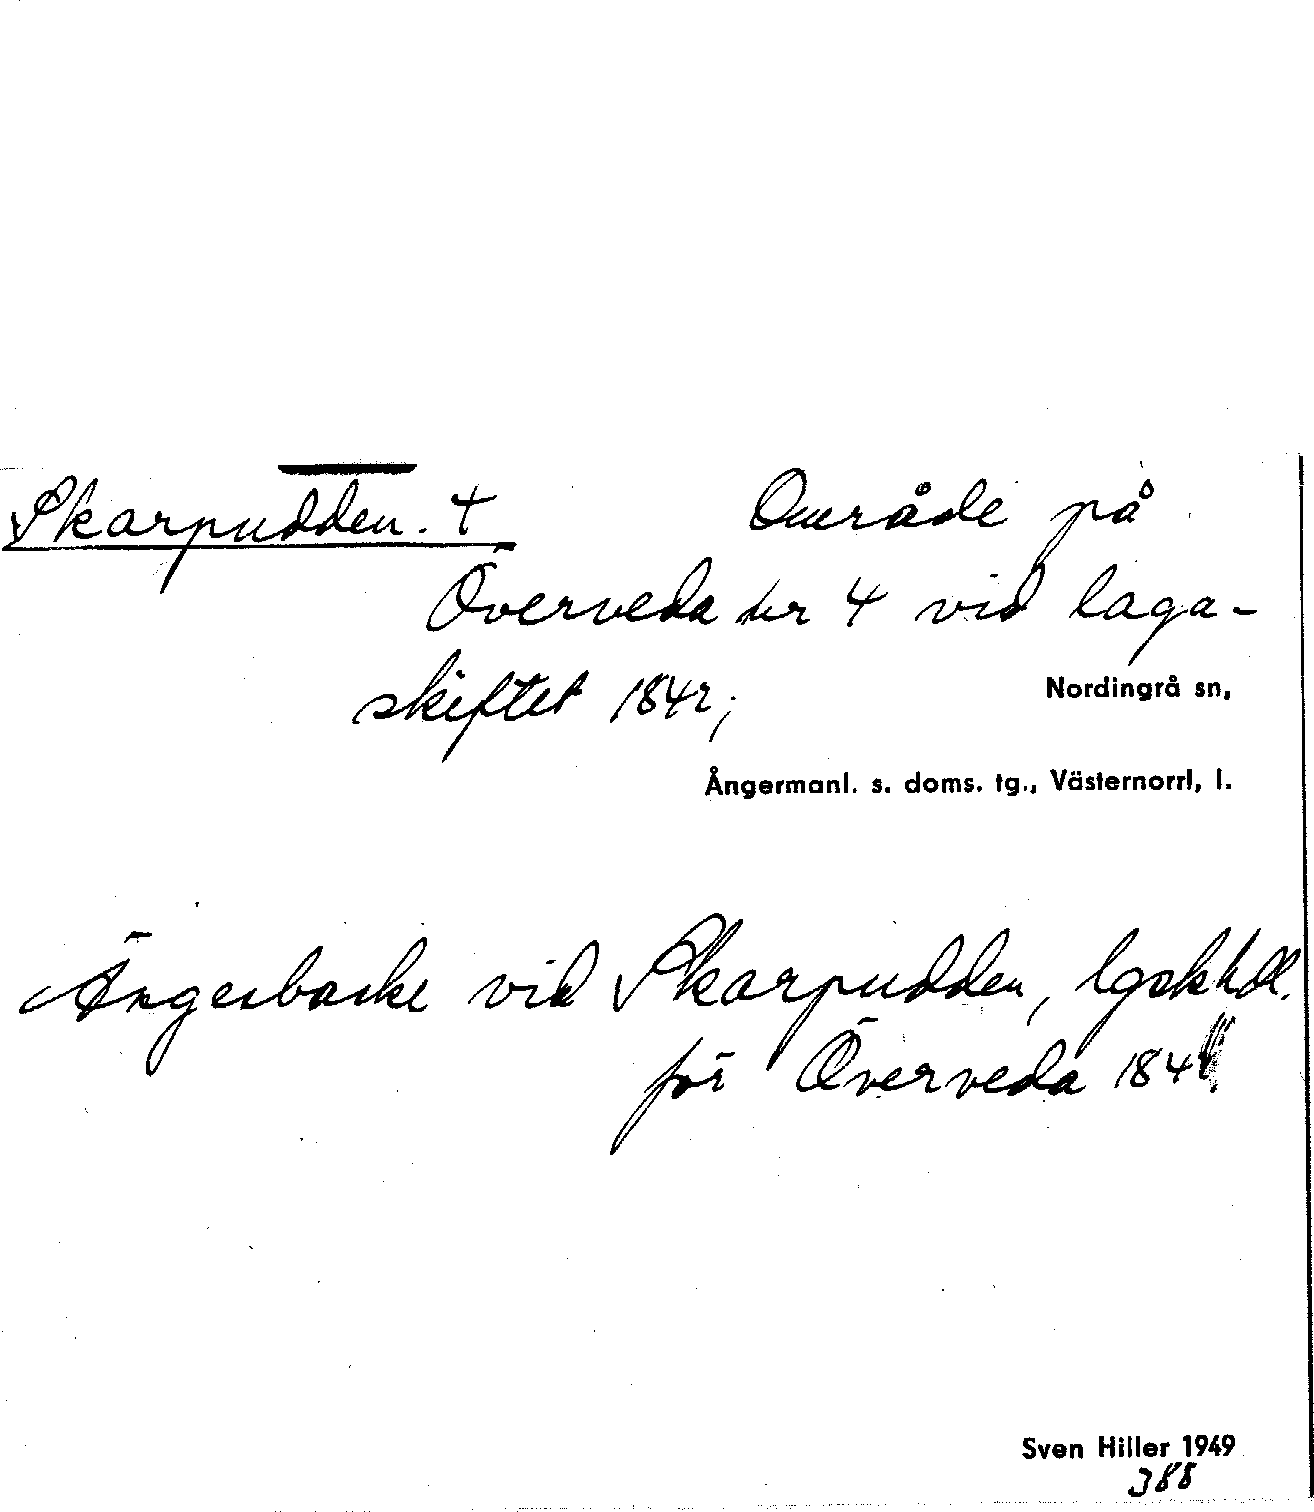 Skarpudden. †
Område på
Överveda nr 4 vid laga-
skiftet 1842;
Nordingrå sn,
Ångermanl. s. doms. tg., Västernorrl, l.
Ängesbacke vid Skarpudden, lgskhdl.
för Överveda 184
Sven Hiller 1949
388